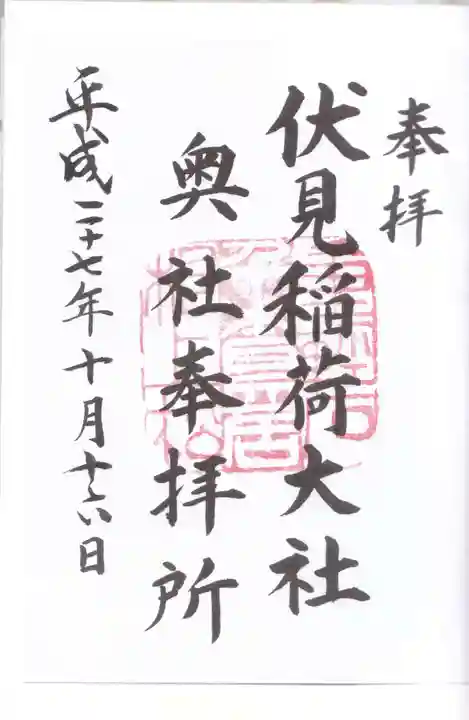 奉拝
伏見稲荷大社
奥社奉拝所
平成二十七年十月十六日